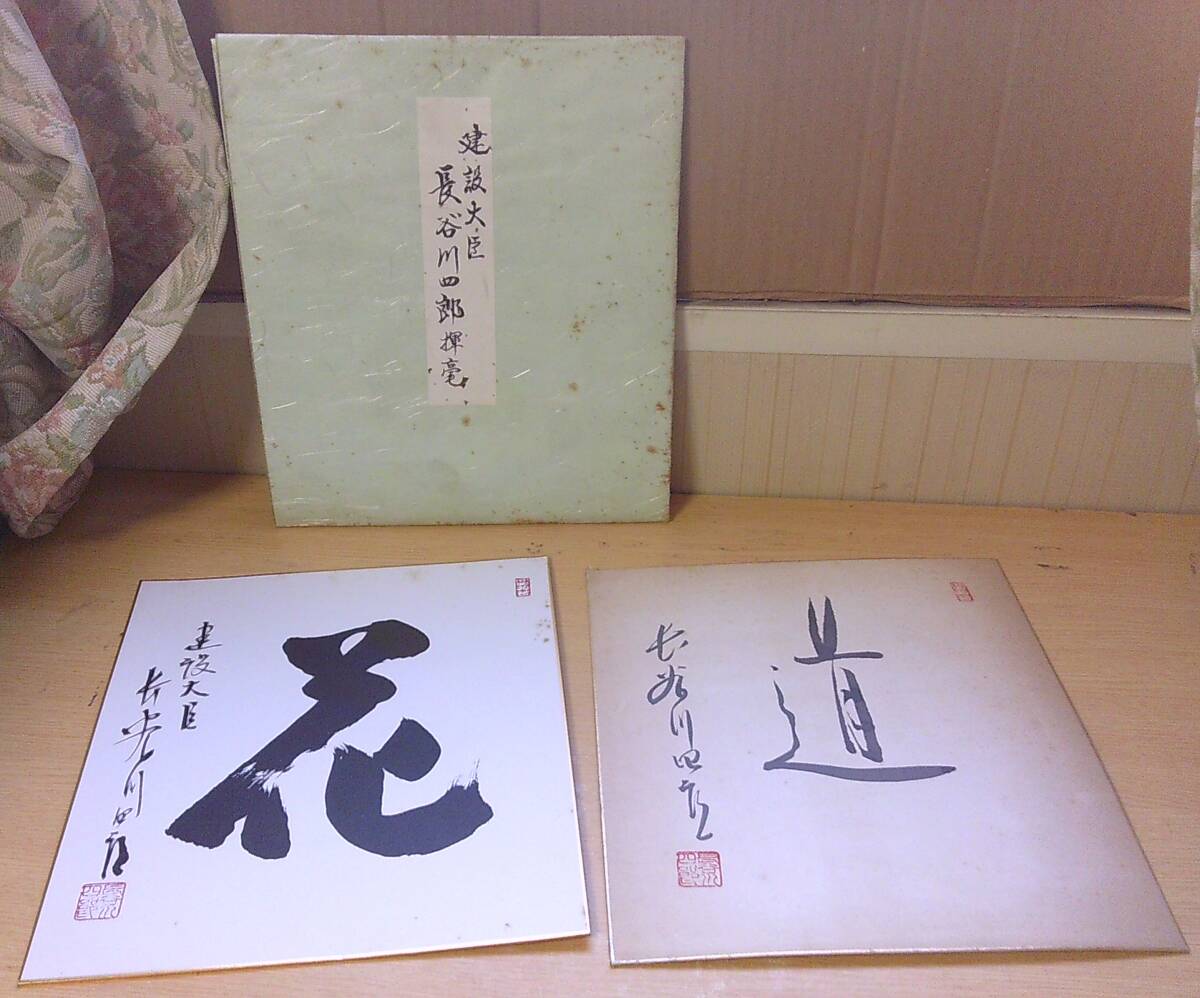 建設大臣
長谷川四郎揮毫
花
建設大臣
長谷川四郎
道
長谷川四郎